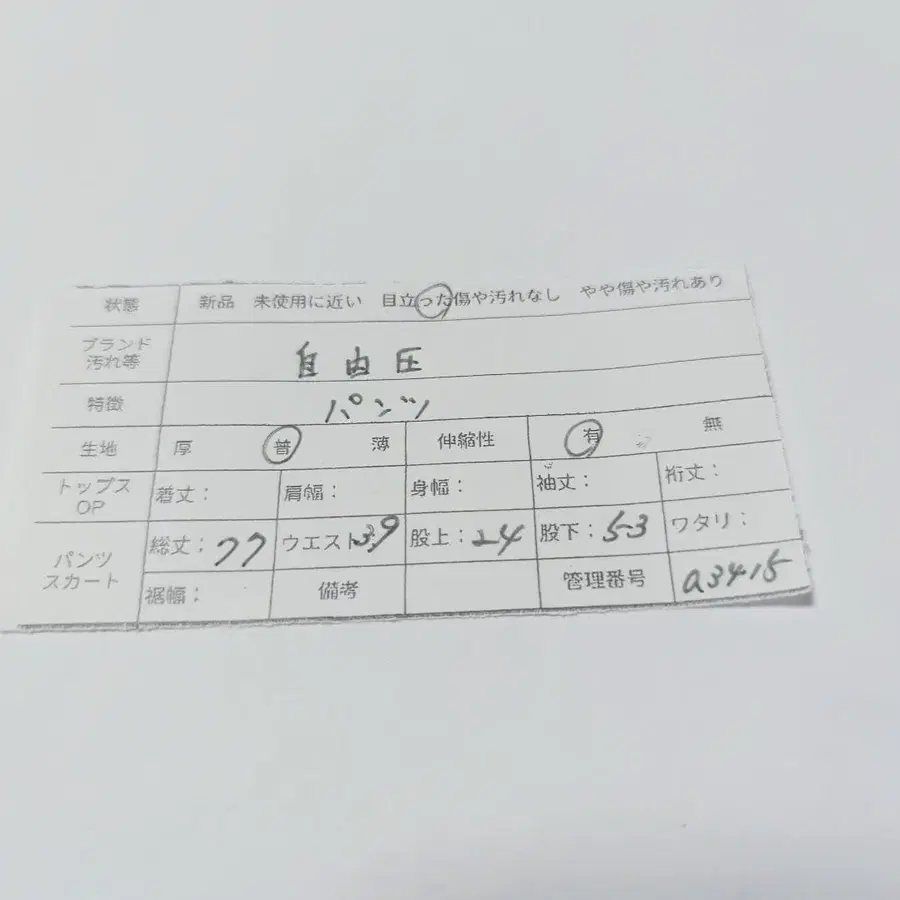 状態 新品 未使用に近い 目立った傷や汚れなし やや傷や汚れあり
ブランド
汚れ等 自由圧
特徴 パンツ
生地 厚 普 薄 伸縮性 有 無
トップス
OP 着丈: 肩幅: 身幅: 袖丈: 裄丈:
パンツ
スカート 総丈:77 ウエスト:39 股上:24 股下:53 ワタリ:
裾幅: 備考 管理番号 a3415